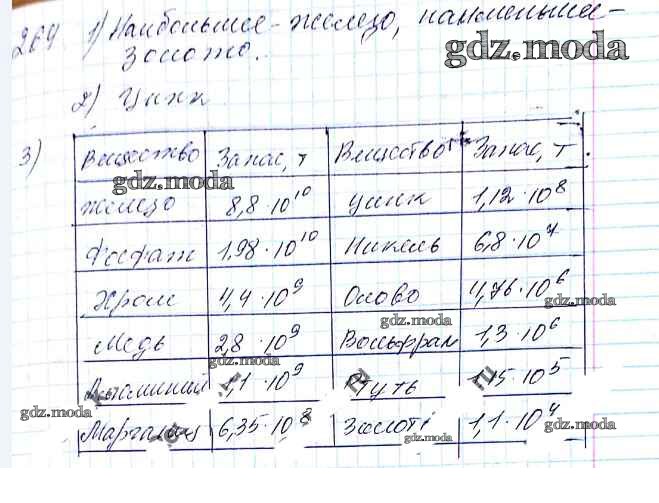 264 1) Наибольшее - железо, наименьшее -
золото.
gdz.moda
2) Цинк
3)
Вещество Запас, т Вещество Запас, т
gdz.moda
железо 8,8·10¹⁰ цинк 1,12·10⁸
Фосфат 1,98·10¹⁰ Никель 6,8·10⁷
Хром 4,4·10⁹ Олово 4,76·10⁶
gdz.moda gdz.moda
Медь 2,8·10⁹ Вольфрам 1,3·10⁶
gdz.moda
Алюминий 1,1·10⁹ Ртуть 10⁵
gdz.moda
Марганец 6,35·10⁸ Золото 1,1·10⁴
gdz.moda gdz.moda